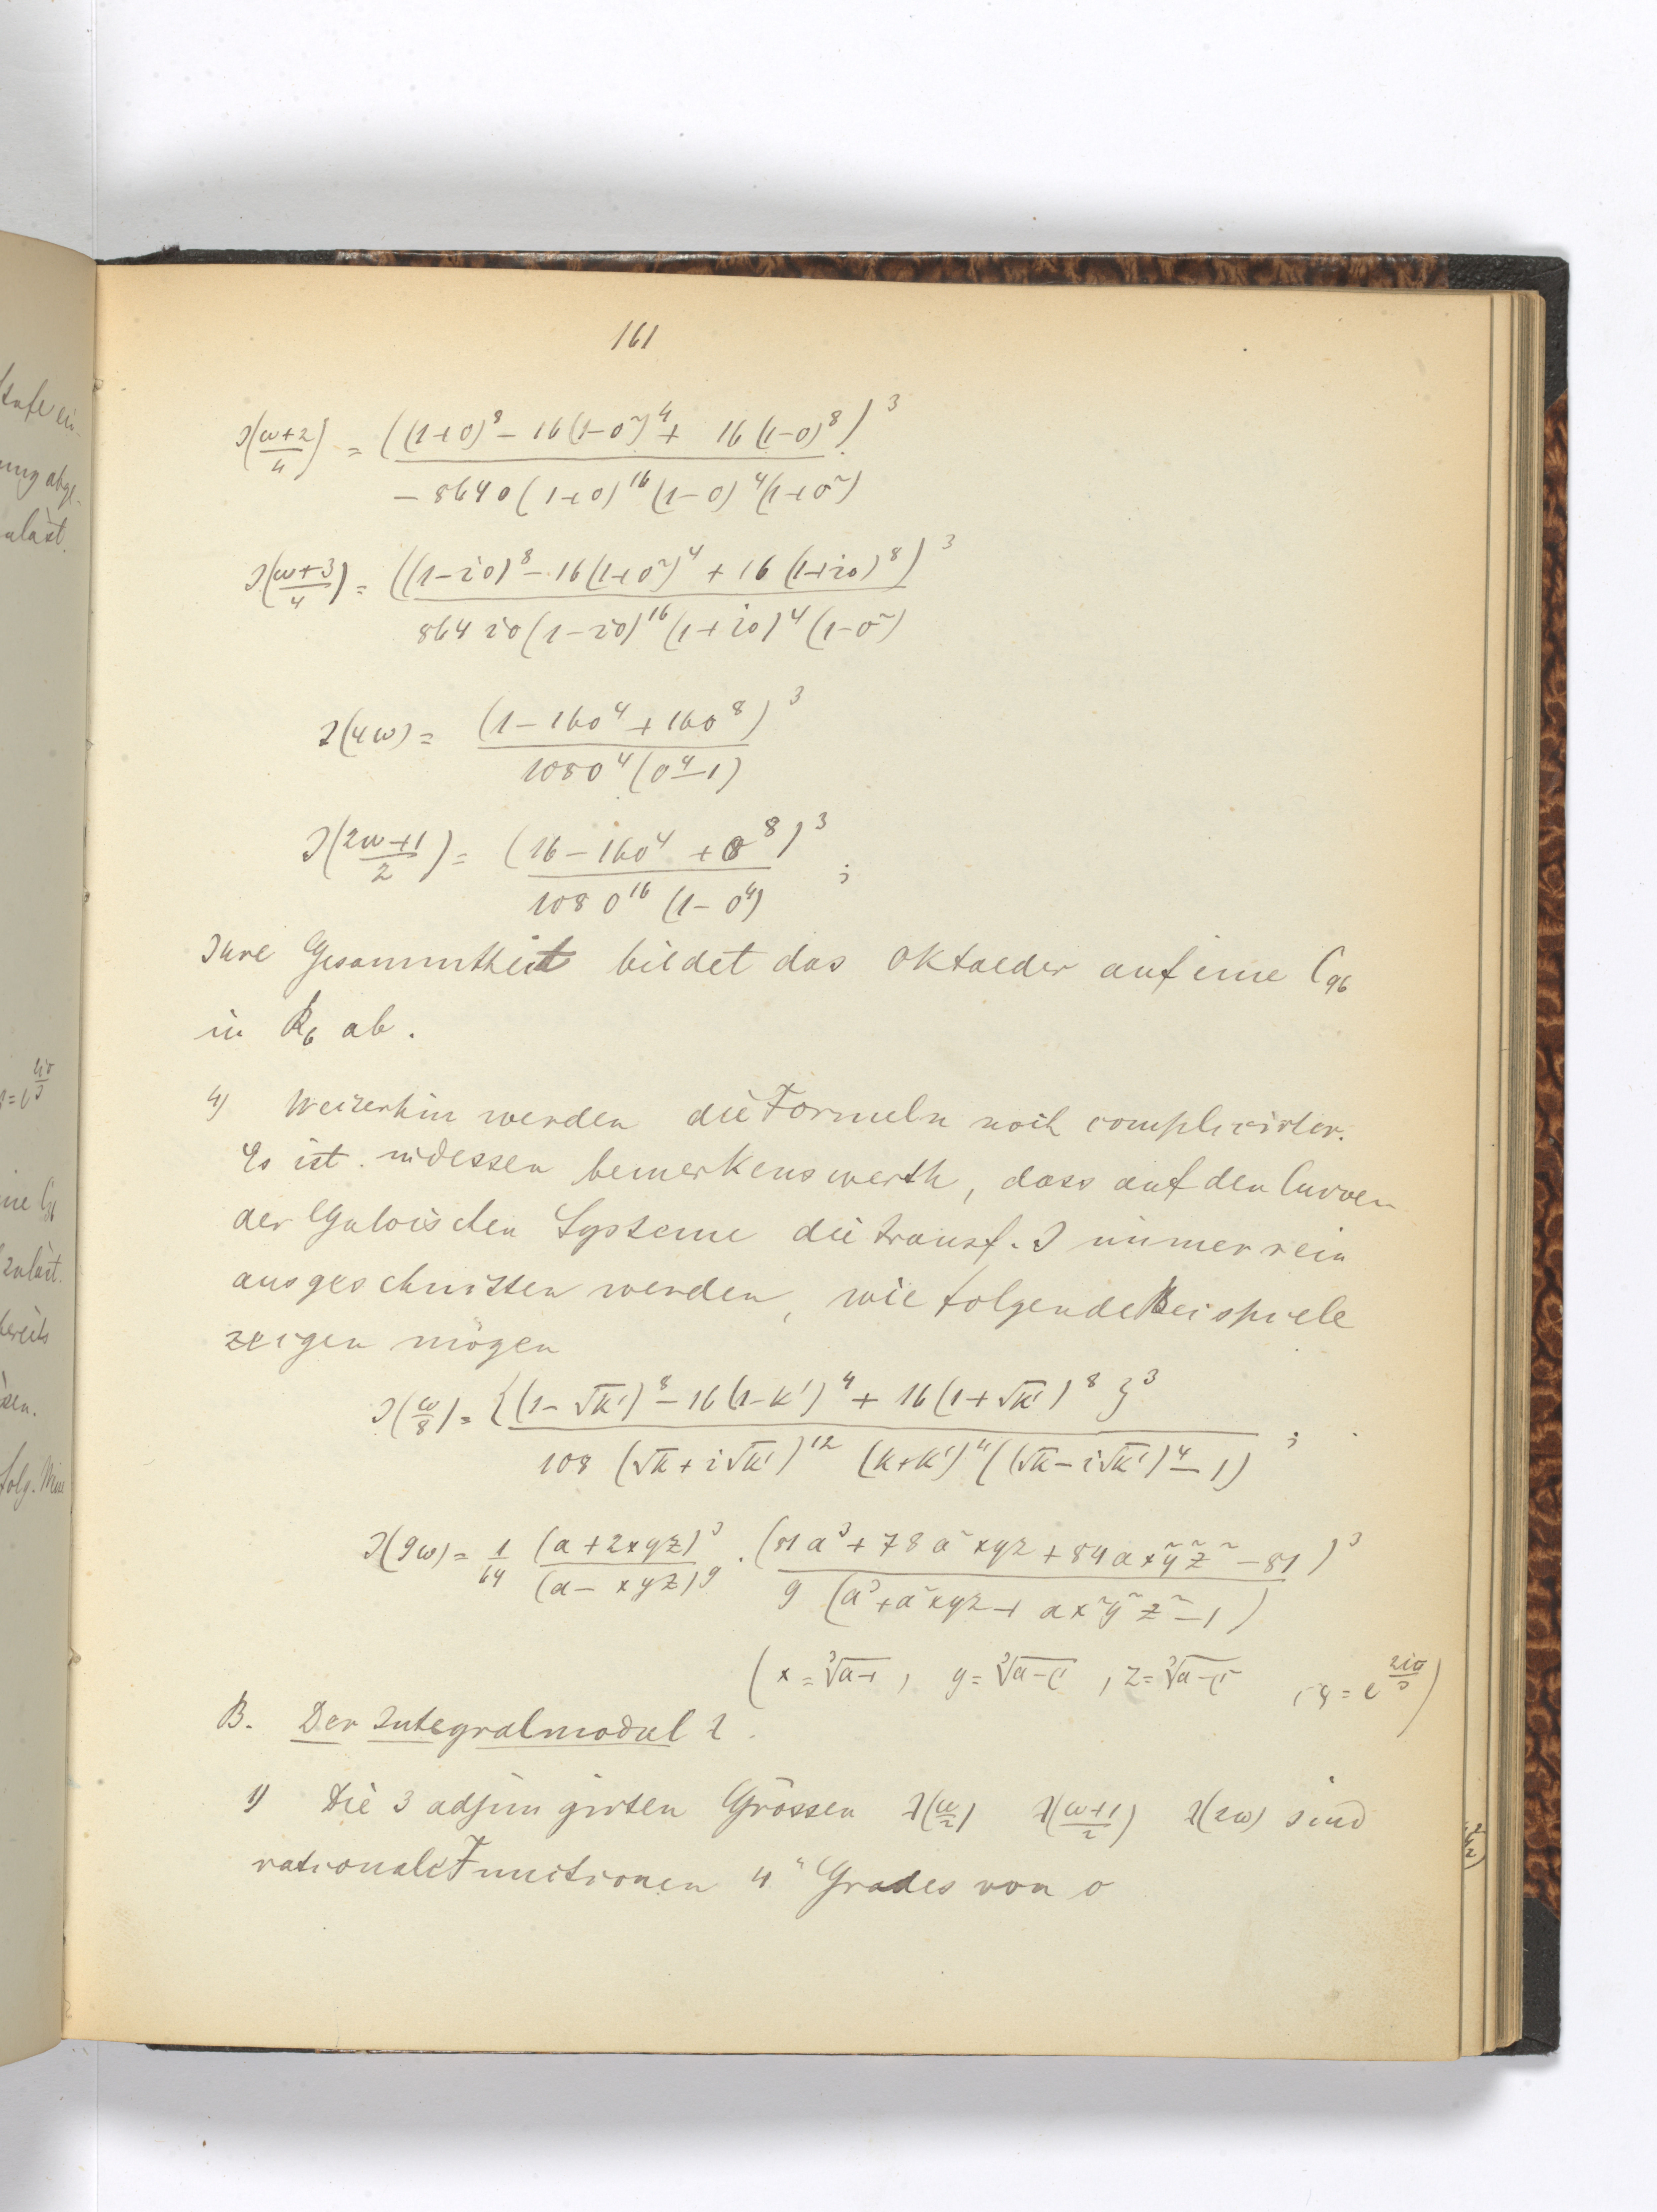 161
J(ω+2/4) = ((1+o)^8 − 16(1−o²)^4 + 16(1−o)^8)^3 / −864 o(1+o)^16 (1−o)^4 (1+o²)
J(ω+3/4) = ((1−io)^8 − 16(1+o²)^4 + 16(1+io)^8)^3 / 864 io(1−io)^16 (1+io)^4 (1−o²)
J(4ω) = (1−16o^4 + 16o^8)^3 / 108o^4(o^4−1)
J(2ω+1/2) = (16−16o^4 + o^8)^3 / 108 o^16 (1−o^4) ;
Ihre Gesammtheit bildet das Oktaeder auf eine C_96
in R_6 ab.
4) Weiterhin werden die Formeln noch complicirter.
Es ist indessen bemerkenswerth, dass auf den Curven
der Galois'schen Systeme die transf. J immer rein
ausgeschnitten werden, wie folgende Beispiele
zeigen mögen
J(ω/8) = {(1−√k')^8 − 16(1−k')^4 + 16(1+√k')^8}^3 / 108 (√k + i√k')^12 (k+k')^4 ((√k − i√k')^4 − 1) ;
J(9ω) = 1/64 (a+2xyz)^3 / (a−xyz)^9 · (81a³ + 78a²xyz + 84ax²y²z² − 81)^3 / 9 (a³+a²xyz + ax²y²z² − 1)
(x = ∛a−1 , y = ∛a−ϱ , z = ∛a−ϱ² , ϱ = e^2iπ/3)
B. Der Integralmodul λ.
1) Die 3 adjungirten Grössen λ(ω/2) λ(ω+1/2) λ(2ω) sind
rationale Functionen 4" Grades von o